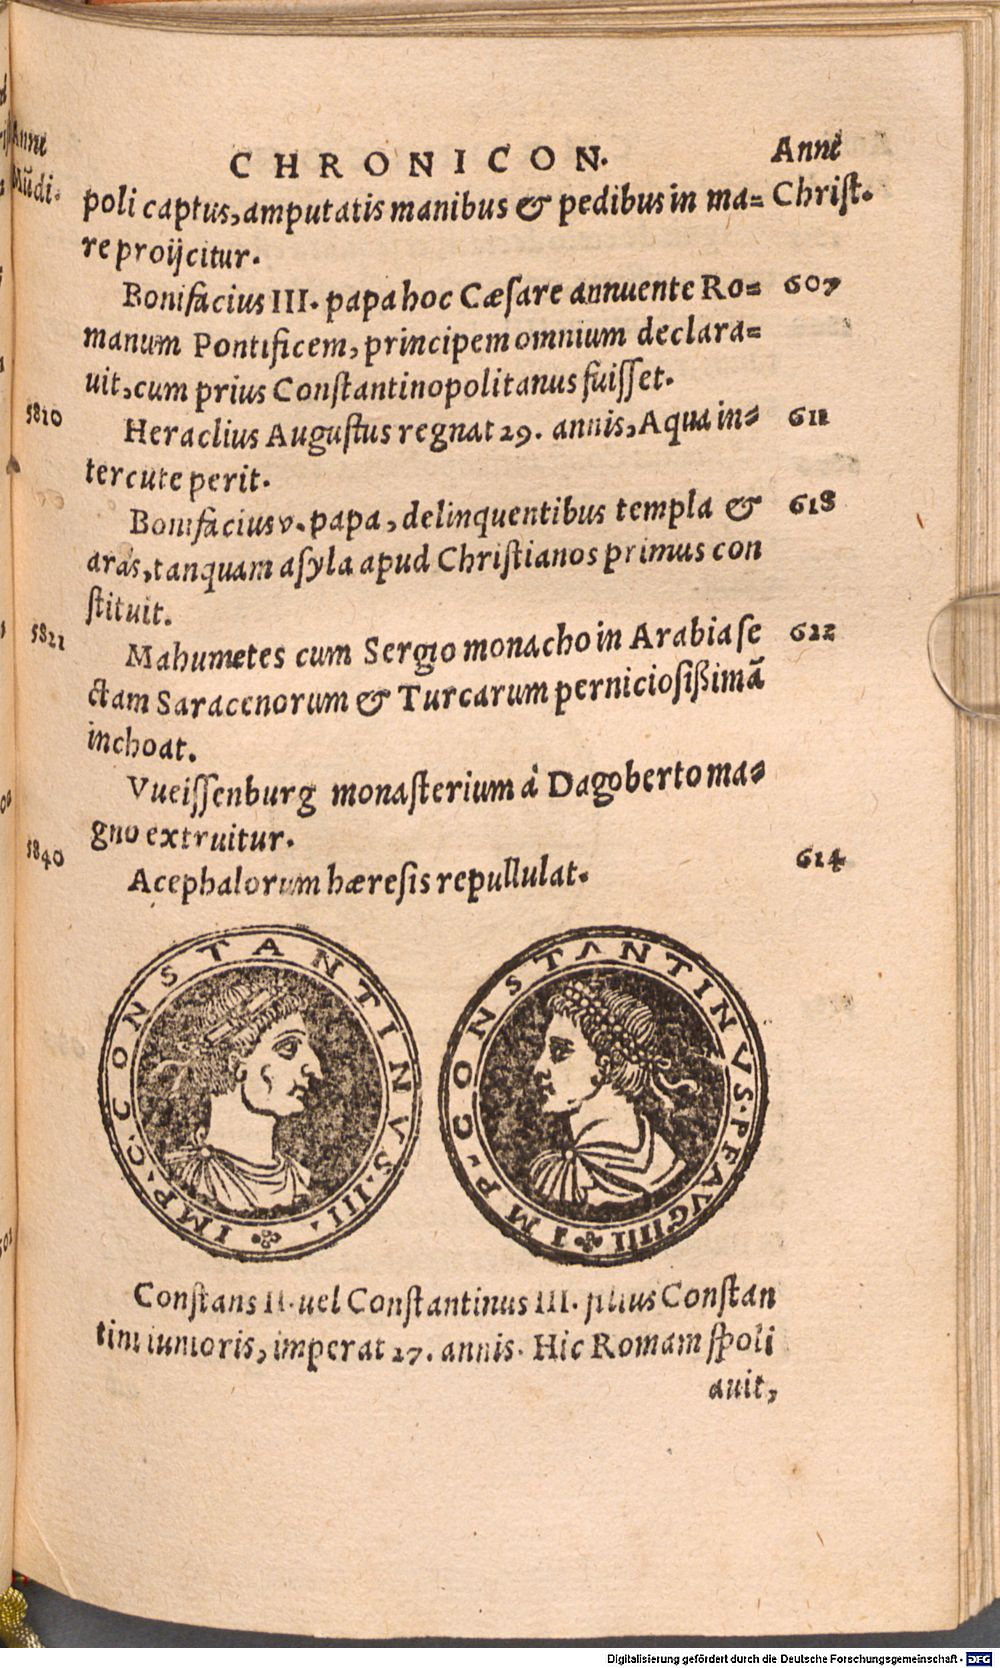 CHRONICON.
Anni
Mũdi.
Anni
Christ.
poli captus, amputatis manibus & pedibus in ma=
re proijcitur.
Bonifacius III. papa hoc Cæsare annuente Ro= 607
manum Pontificem, principem omnium declara=
uit, cum prius Constantinopolitanus fuisset.
5810 Heraclius Augustus regnat 29. annis, Aqua in= 611
tercute perit.
Bonifacius v. papa, delinquentibus templa & 618
aras, tanquam asyla apud Christianos primus con
stituit.
5821 Mahumetes cum Sergio monacho in Arabia se 622
ctam Saracenorum & Turcarum perniciosißimã
inchoat.
Vueissenburg monasterium à Dagoberto ma=
gno extruitur.
5840 Acephalorum hæresis repullulat. 614
IMP. C. CONSTANTINVS. III.
IMP. CONSTANTINVS. P F AVG IIII
Constans II. uel Constantinus III. filius Constan
tini iunioris, imperat 27. annis. Hic Romam spoli
auit,
Digitalisierung gefördert durch die Deutsche Forschungsgemeinschaft - DFG